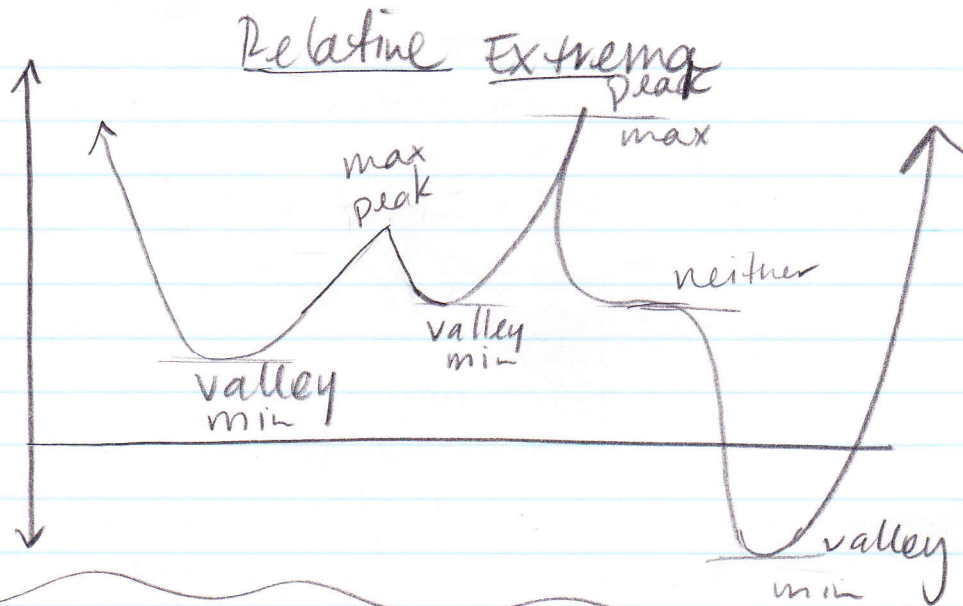 Relative Extrema
peak
max
max
peak
neither
valley
min
valley
min
valley
min